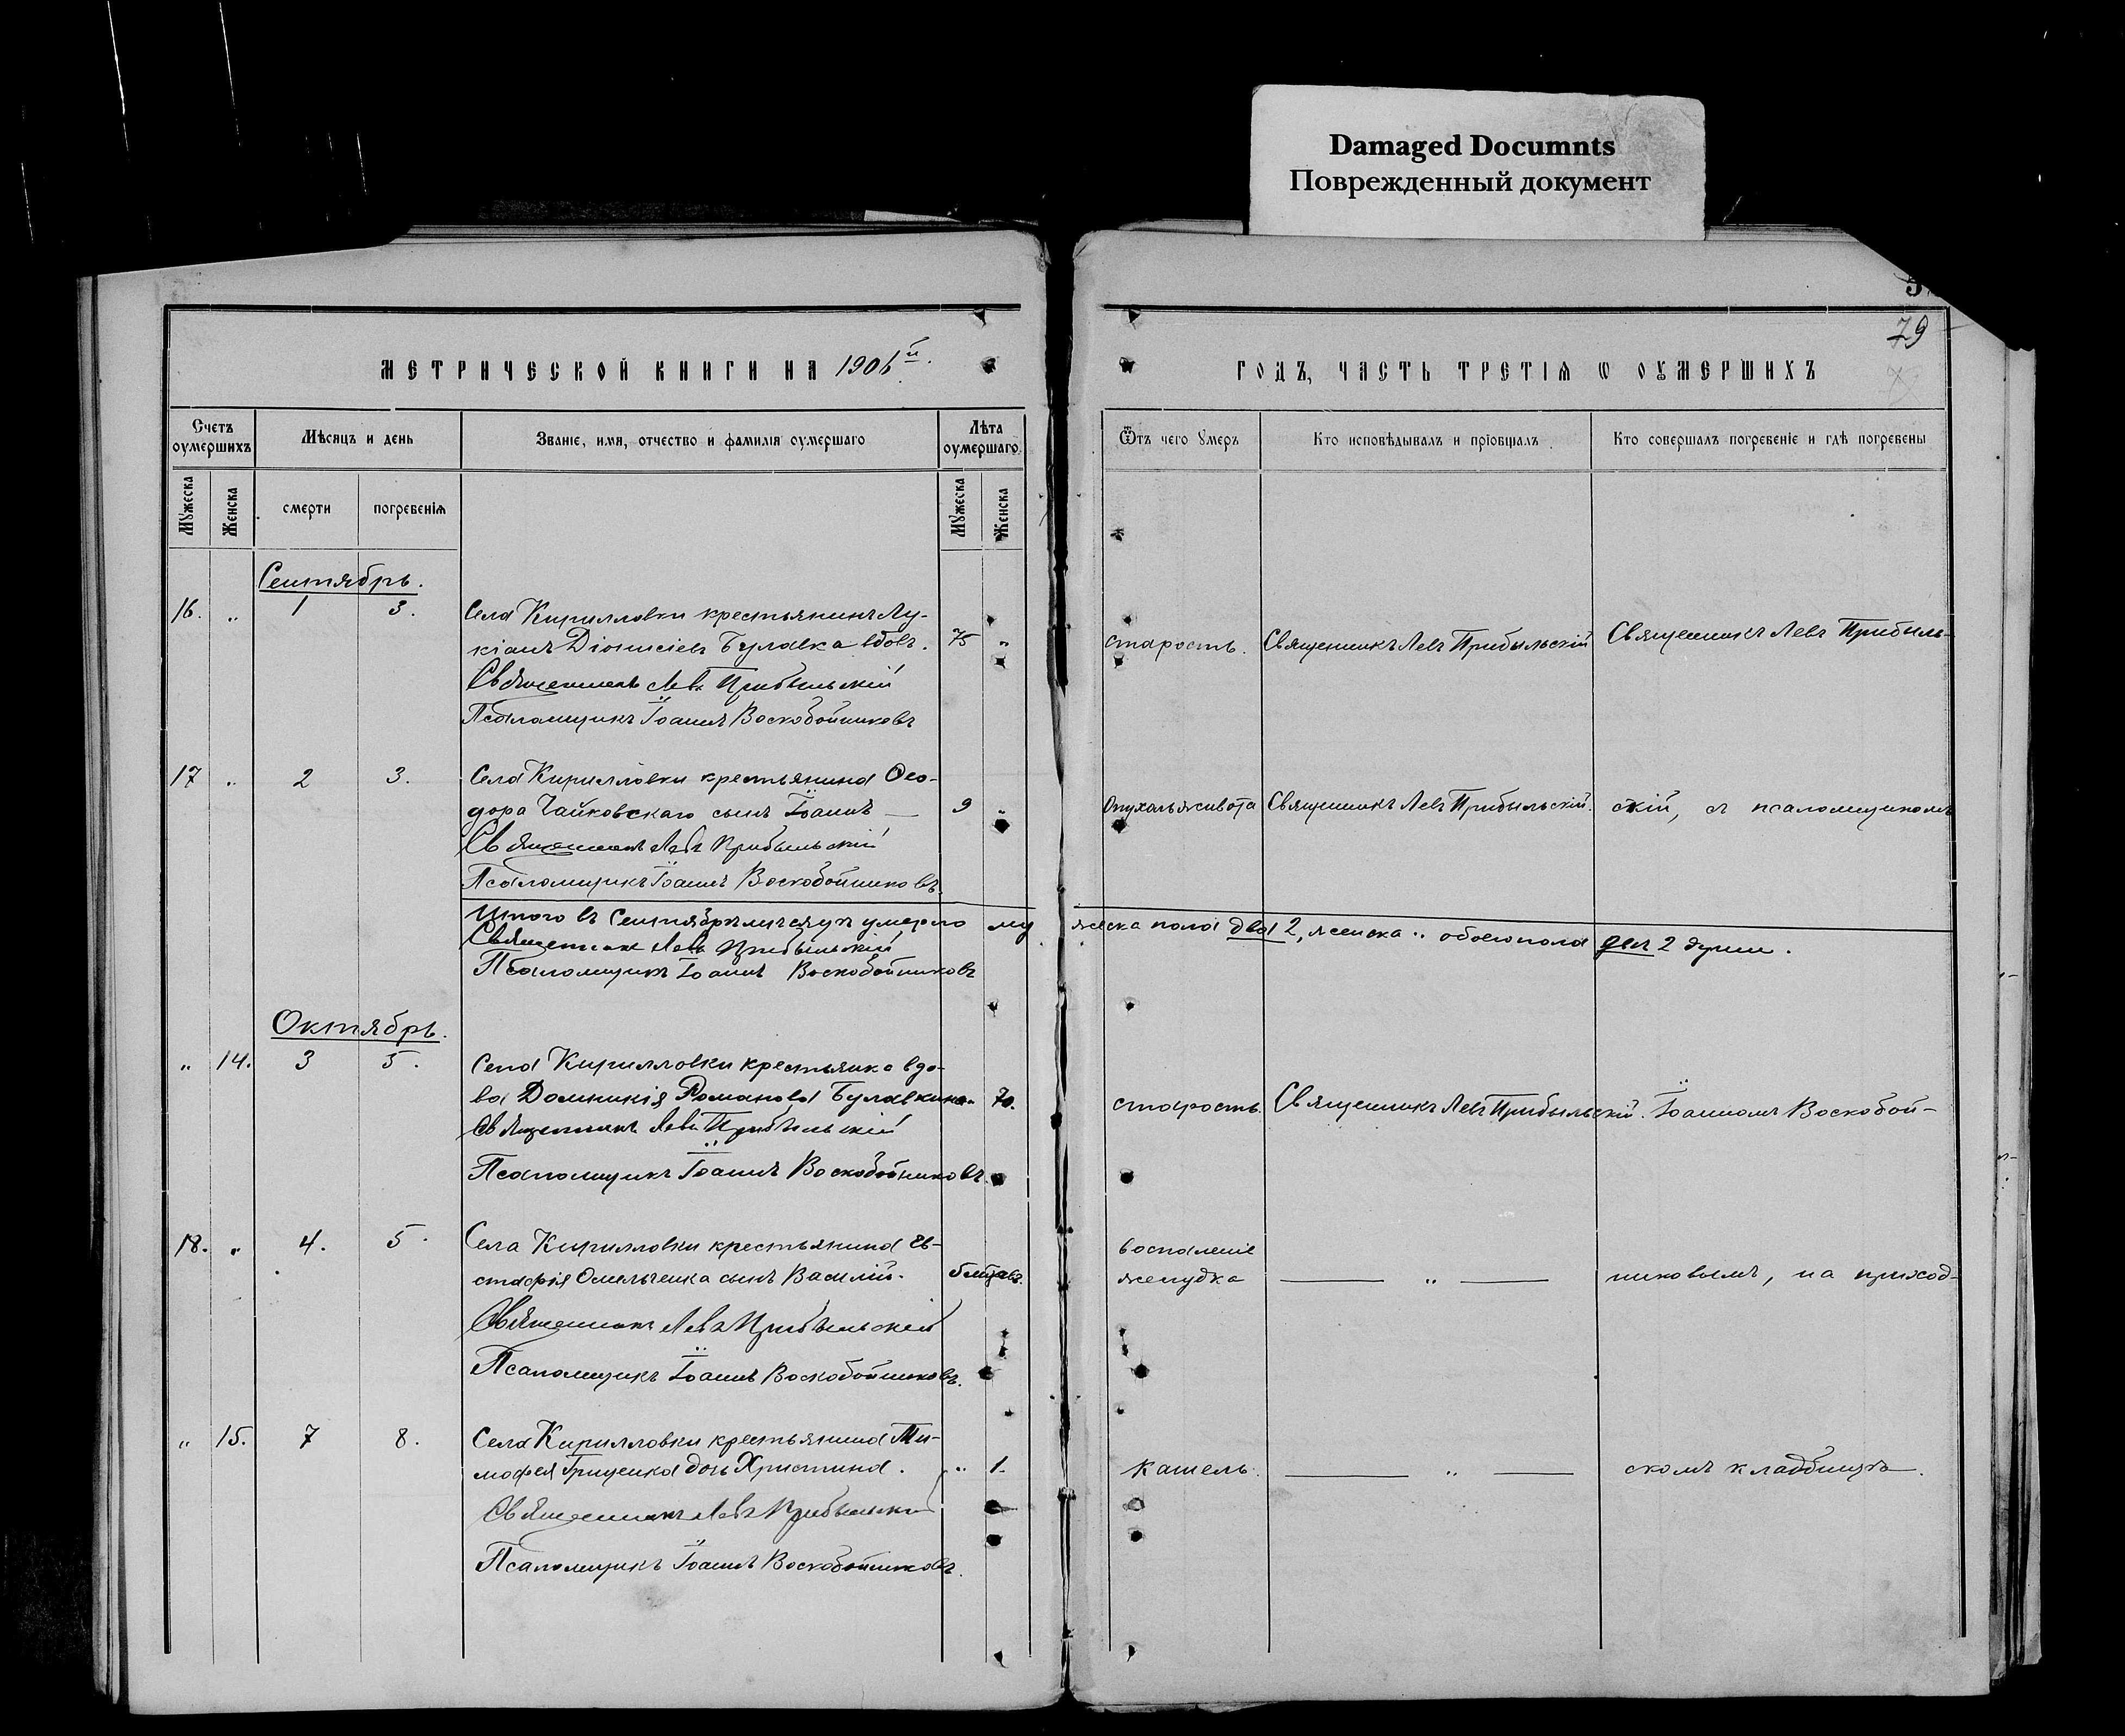 Damaged Documnts
Поврежденный документ
79
МЕТРИЧЕСКОЙ КНИГИ НА 1906й.
ГОДЪ, ЧАСТЬ ТРЕТІЯ Ѡ ОУМЕРШИХЪ
Счетъ оумершихъ
Мѣсяцъ и день
Званіе, имя, отчество и фамилія оумершаго
Лѣта оумершаго
Ѿтъ чего умеръ
Кто исповѣдывалъ и пріобщалъ
Кто совершалъ погребеніе и гдѣ погребены
Мужеска
Женска
смерти
погребенія
Мужеска
Женска
Сентябрь.
16. „ 1 3. Села Кирилловки крестьянинъ Лу-
кіанъ Діонисіевъ Булавка вдовъ. 75 „ старость. Священникъ Левъ Прибыльскій Священникъ Левъ Прибыль-
Священникъ Левъ Прибыльскій
Псаломщикъ Іоаннъ Воскобойниковъ
17 „ 2 3. Села Кирилловки крестьянина Ѳео-
дора Чайковскаго сынъ Іоаннъ — 9 „ Опухаль живота Священникъ Левъ Прибыльскій. скій, съ псаломщикомъ
Священникъ Левъ Прибыльскій
Псаломщикъ Іоаннъ Воскобойниковъ.
Итого въ Сентябрѣ мѣсяцѣ умерло му жеска пола два 2, женска „ обоего пола двѣ 2 души.
Священникъ Левъ Прибыльскій
Псаломщикъ Іоаннъ Воскобойниковъ
Октябрь.
„ 14. 3 5. Села Кирилловки крестьянка вдо-
ва Домникія Романова Булавкина „ 70. старость. Священникъ Левъ Прибыльскій. Іоанномъ Воскобой-
Священникъ Левъ Прибыльскій
Псаломщикъ Іоаннъ Воскобойниковъ.
18. „ 4. 5. Села Кирилловки крестьянина Ев-
стафія Омельченка сынъ Василій. воспаленіе
желудка — „ — никовымъ, на приход-
Священникъ Левъ Прибыльскій
Псаломщикъ Іоаннъ Воскобойниковъ.
„ 15. 7 8. Села Кирилловки крестьянина Ти-
мофея Гриценка дочь Христина. „ 1. Кашель. — „ — скомъ кладбищѣ.
Священникъ Левъ Прибыльскій
Псаломщикъ Іоаннъ Воскобойниковъ.